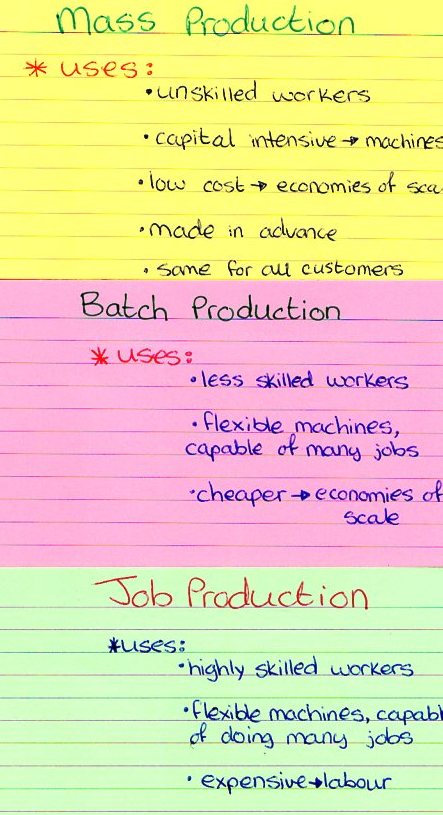 Mass Production
* uses:
• unskilled workers
• capital intensive → machines
• low cost → economies of sca
• made in advance
• same for all customers
Batch Production
* uses:
• less skilled workers
• flexible machines,
capable of many jobs
• cheaper → economies of
scale
Job Production
* uses:
• highly skilled workers
• flexible machines, capabl
of doing many jobs
• expensive → labour